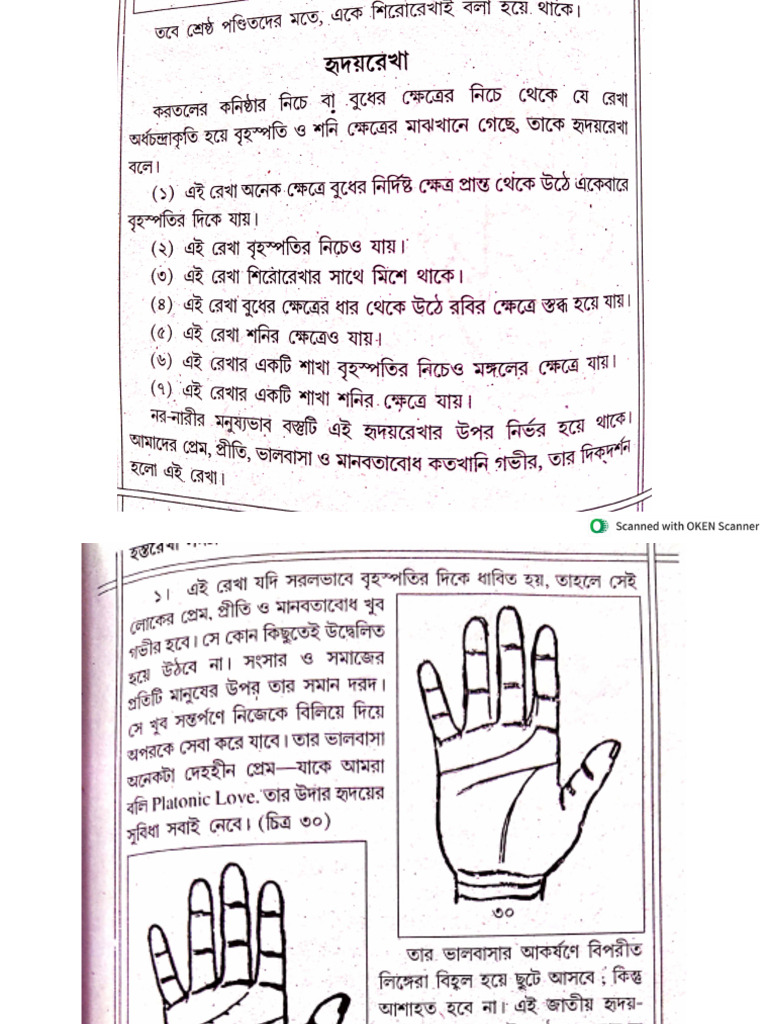 তবে শ্রেষ্ঠ পণ্ডিতদের মতে, একে শিরোরেখাই বলা হয়ে থাকে।
হৃদয়রেখা
করতলের কনিষ্ঠার নিচে বা বুধের ক্ষেত্রের নিচে থেকে যে রেখা
অর্ধচন্দ্রাকৃতি হয়ে বৃহস্পতি ও শনি ক্ষেত্রের মাঝখানে গেছে, তাকে হৃদয়রেখা
বলে।
(১) এই রেখা অনেক ক্ষেত্রে বুধের নির্দিষ্ট ক্ষেত্র প্রান্ত থেকে উঠে একেবারে
বৃহস্পতির দিকে যায়।
(২) এই রেখা বৃহস্পতির নিচেও যায়।
(৩) এই রেখা শিরোরেখার সাথে মিশে থাকে।
(৪) এই রেখা বুধের ক্ষেত্রের ধার থেকে উঠে রবির ক্ষেত্রে স্তব্ধ হয়ে যায়।
(৫) এই রেখা শনির ক্ষেত্রেও যায়।
(৬) এই রেখার একটি শাখা বৃহস্পতির নিচেও মঙ্গলের ক্ষেত্রে যায়।
(৭) এই রেখার একটি শাখা শনির ক্ষেত্রে যায়।
নর-নারীর মনুষ্যভাব বস্তুটি এই হৃদয়রেখার উপর নির্ভর হয়ে থাকে।
আমাদের প্রেম, প্রীতি, ভালবাসা ও মানবতাবোধ কতখানি গভীর, তার দিক্‌দর্শন
হলো এই রেখা।
Scanned with OKEN Scanner
হস্তরেখা
১। এই রেখা যদি সরলভাবে বৃহস্পতির দিকে ধাবিত হয়, তাহলে সেই
লোকের প্রেম, প্রীতি ও মানবতাবোধ খুব
গভীর হবে। সে কোন কিছুতেই উদ্বেলিত
হয়ে উঠবে না। সংসার ও সমাজের
প্রতিটি মানুষের উপর তার সমান দরদ।
সে খুব সন্তর্পণে নিজেকে বিলিয়ে দিয়ে
অপরকে সেবা করে যাবে। তার ভালবাসা
অনেকটা দেহহীন প্রেম—যাকে আমরা
বলি Platonic Love. তার উদার হৃদয়ের
সুবিধা সবাই নেবে। (চিত্র ৩০)
৩০
তার ভালবাসার আকর্ষণে বিপরীত
লিঙ্গেরা বিহ্বল হয়ে ছুটে আসবে ; কিন্তু
আশাহত হবে না। এই জাতীয় হৃদয়-